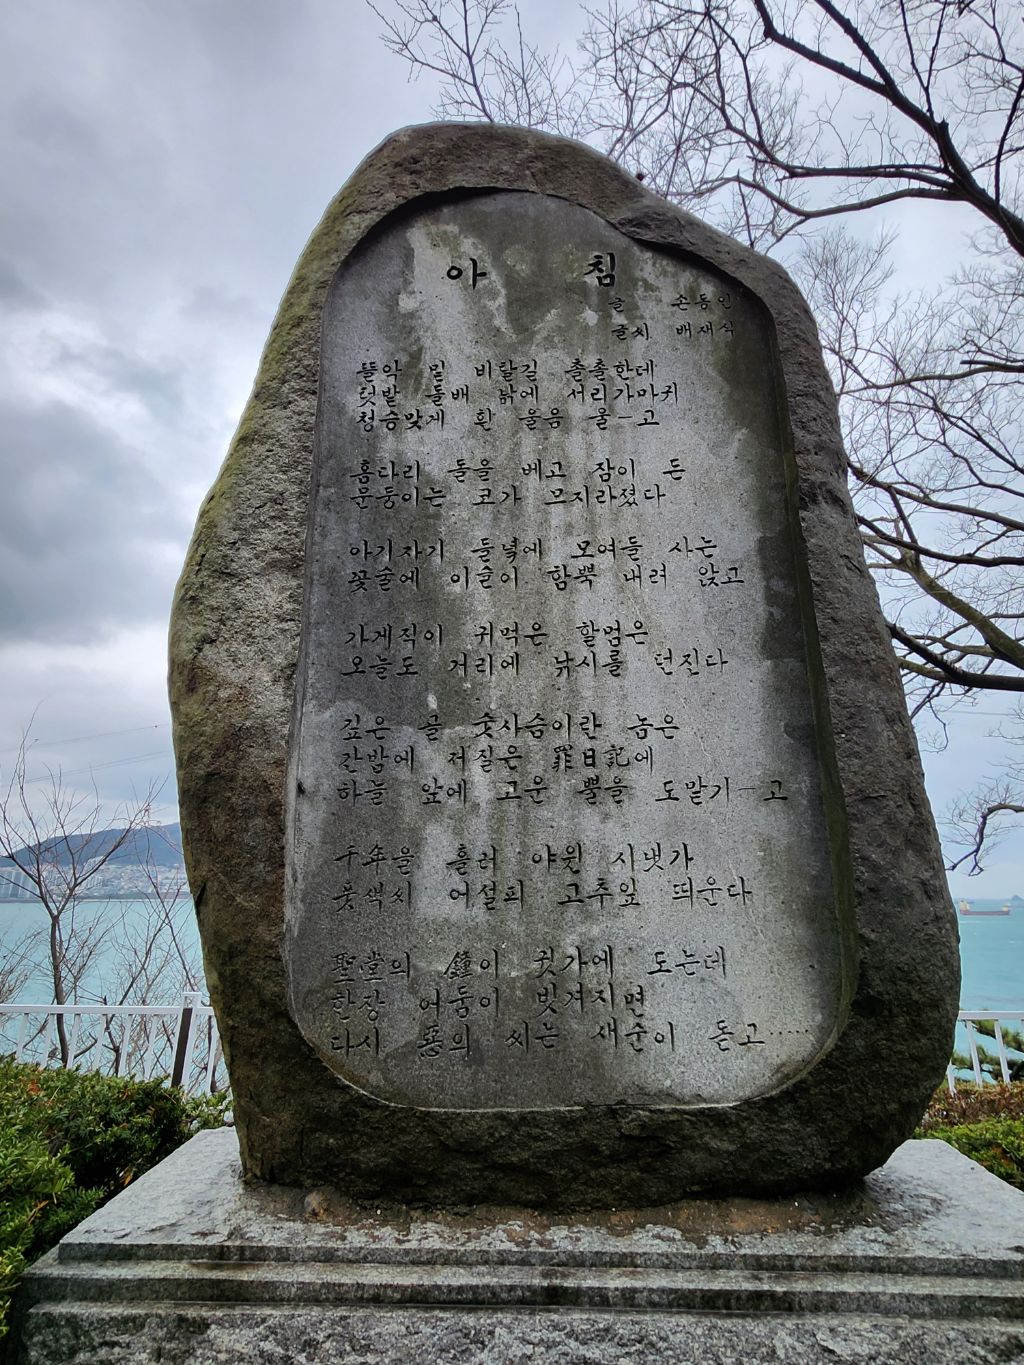 아 침
글 손동인
글씨 배재식
뜰악 밑 비탈길 촐촐한데
텃밭 돌배 낡에 서리가마귀
청승맞게 흰 울음 울ㅡ고
홈다리 돌을 베고 잠이 든
문둥이는 코가 므지라졌다
아기자기 들녘에 모여들 사는
꽃술에 이슬이 함뿍 내려 앉고
가게직이 귀먹은 할멈은
오늘도 거리에 낚시를 던진다
깊은 골 숫사슴이란 놈은
간밤에 저질은 罪日記에
하늘 앞에 고운 뿔을 도맡기ㅡ고
千年을 흘러 야윈 시냇가
풋색시 어설피 고추잎 띄운다
聖堂의 鐘이 귓가에 도는데
한장 어둠이 벗겨지면
다시 惡의 씨는 새순이 돋고……